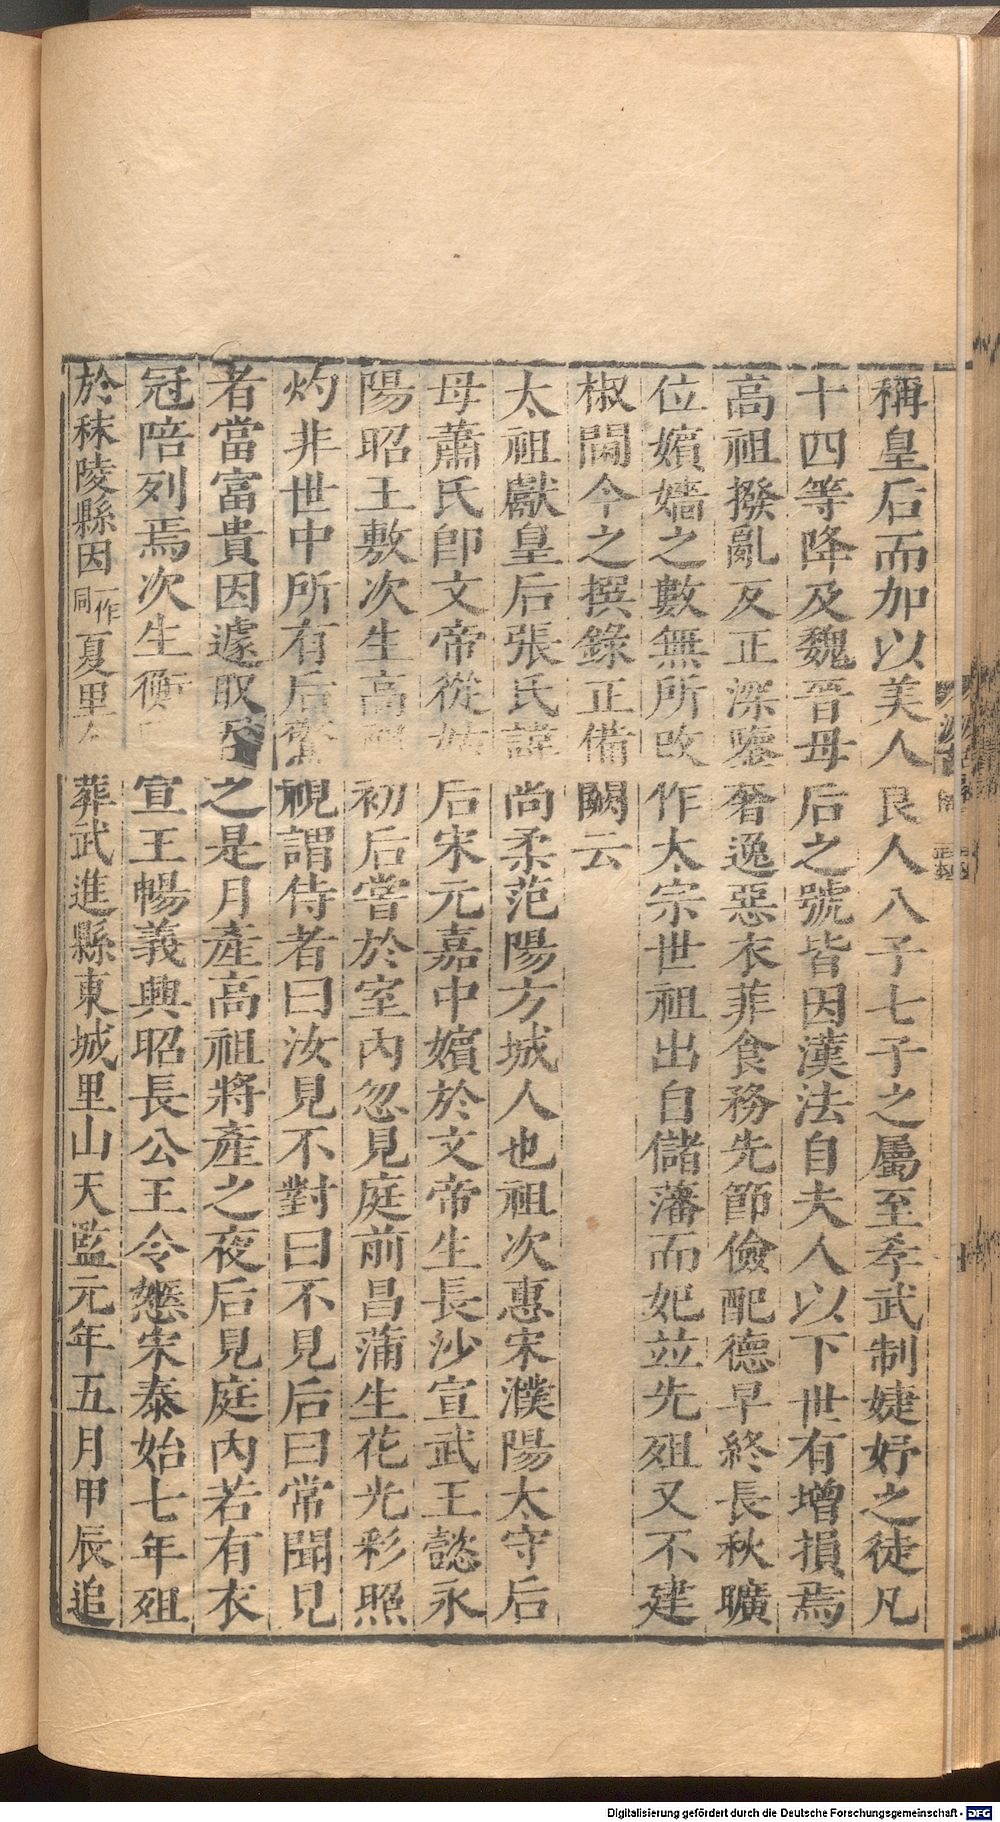 稱皇后而加以美人良人八子七子之屬至孝武制婕妤之徒凡
十四等降及魏晉母后之號皆因漢法自夫人以下世有增損焉
高祖撥亂反正深鑒奢逸惡衣菲食務先節儉配德早終長秋曠
位嬪嬙之數無所改作太宗世祖出自儲藩而妃並先殂又不建
椒閫今之撰錄正備闕云
太祖獻皇后張氏諱尚柔范陽方城人也祖次惠宋濮陽太守后
母蕭氏卽文帝從姑后宋元嘉中嬪於文帝生長沙宣武王懿永
陽昭王敷次生高祖初后嘗於室內忽見庭前昌蒲生花光彩照
灼非世中所有后驚視謂侍者曰汝見不對曰不見后曰常聞見
者當富貴因遽取吞之是月產高祖將產之夜后見庭內若有衣
冠陪列焉次生衡陽宣王暢義興昭長公王令㜦宋泰始七年殂
於秣陵縣因一作同夏里舍葬武進縣東城里山天監元年五月甲辰追
Digitalisierung gefördert durch die Deutsche Forschungsgemeinschaft - DFG